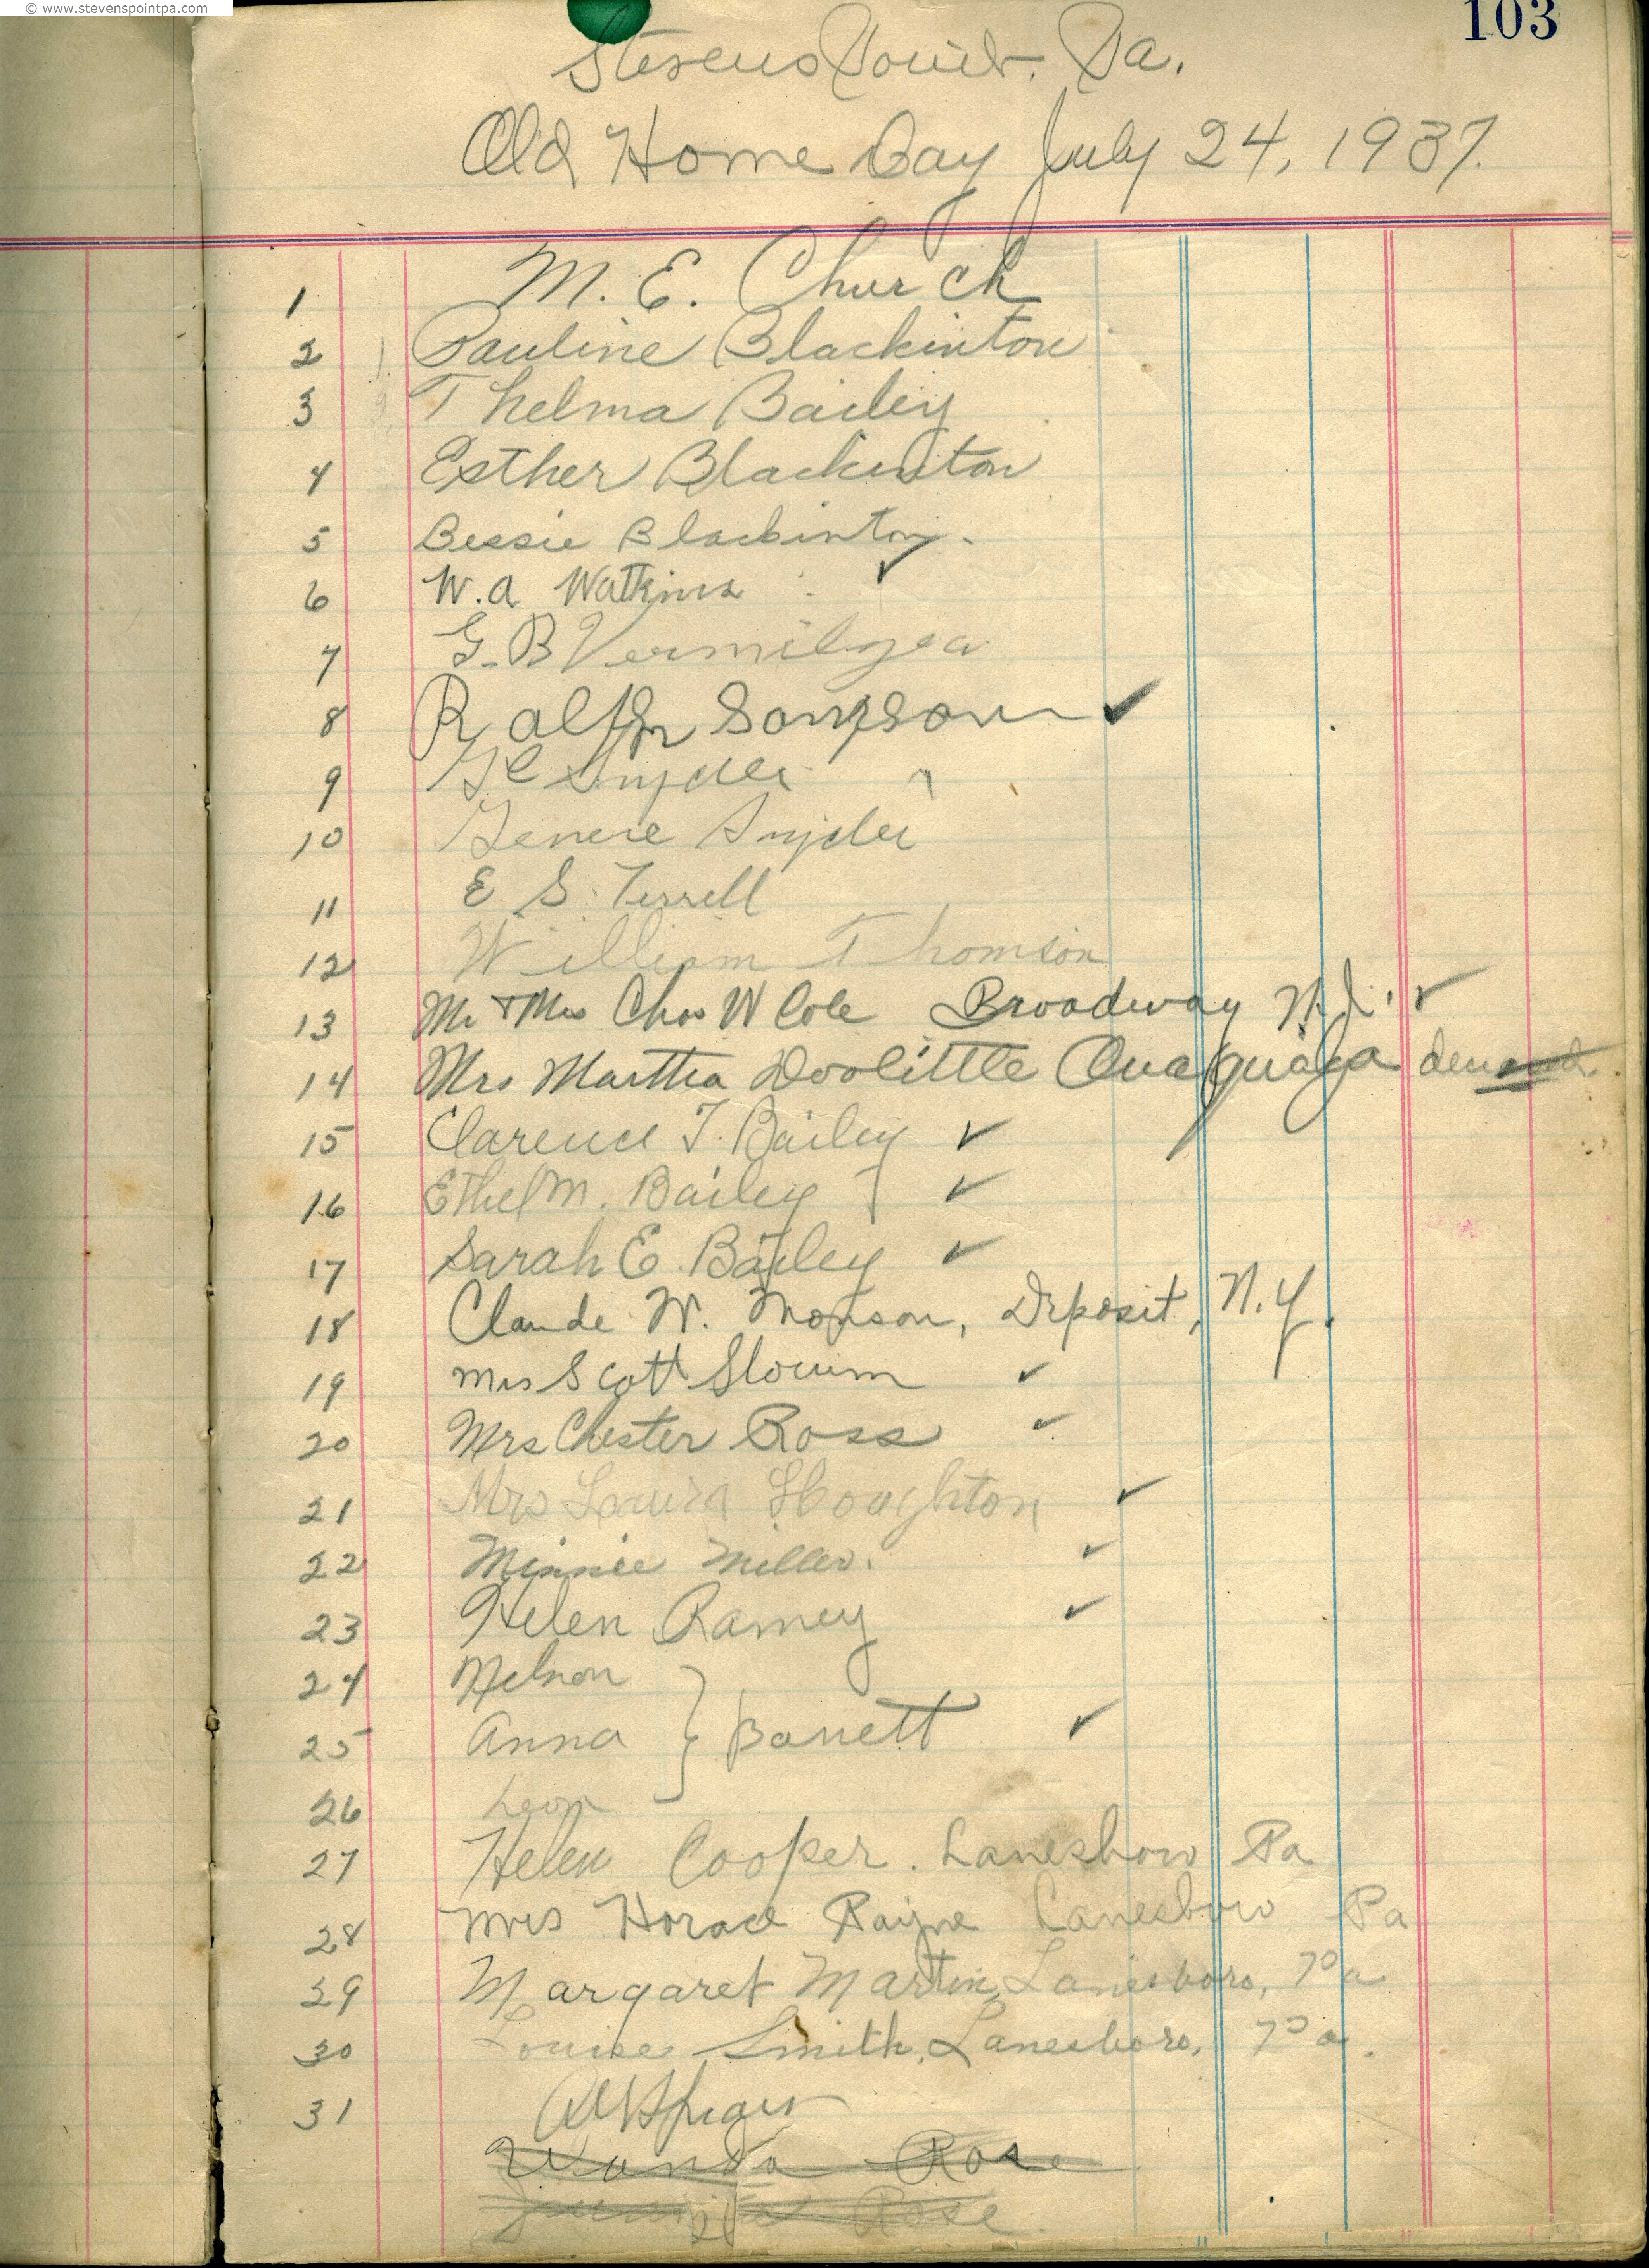 © www.stevenspointpa.com
103
Stevens Point. Pa.
Old Home Day July 24, 1937.
1 M. E. Church
2 Pauline Blackinton
3 Thelma Bailey
4 Esther Blackinton
5 Bessie Blackinton.
6 W. A Watkins ✓
7 G. B Vermilyea
8 Ralph Sampson ✓
9 Snyder
10 Snyder
11 E S. Terrell
12 William Thomson
13 Mr & Mrs Chas W Cole Broadway N.J. ✓
14 Mrs Martha Doolittle Ouaquaga
15 Clarence T. Bailey ✓
16 Ethel M. Bailey } ✓
17 Sarah E. Bailey ✓
18 Claude W. Monson, Deposit, N.Y.
19 Mrs Scott Slocum ✓
20 Mrs Chester Ross ✓
21 Mrs Laura Houghton ✓
22 Minnie Miller. ✓
23 Helen Ramey ✓
24 Nelson
25 Anna } Barrett ✓
26 Leon
27 Helen Cooper. Lanesboro Pa
28 Mrs Horace Rayne Lanesboro Pa
29 Margaret Martin, Lanesboro, Pa
30 Louise Smith, Lanesboro, Pa.
31
Wanda Rose
Rose